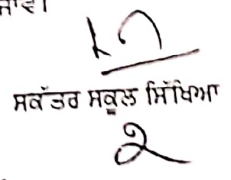 ਜਾਵੇ।
ਸਕੱਤਰ ਸਕੂਲ ਸਿੱਖਿਆ